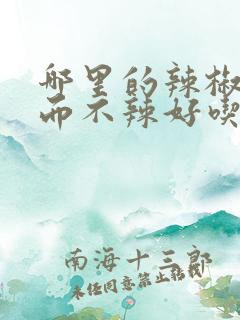 哪里的辣椒
而不辣好喫
南海十三郎
未经同意禁止转载